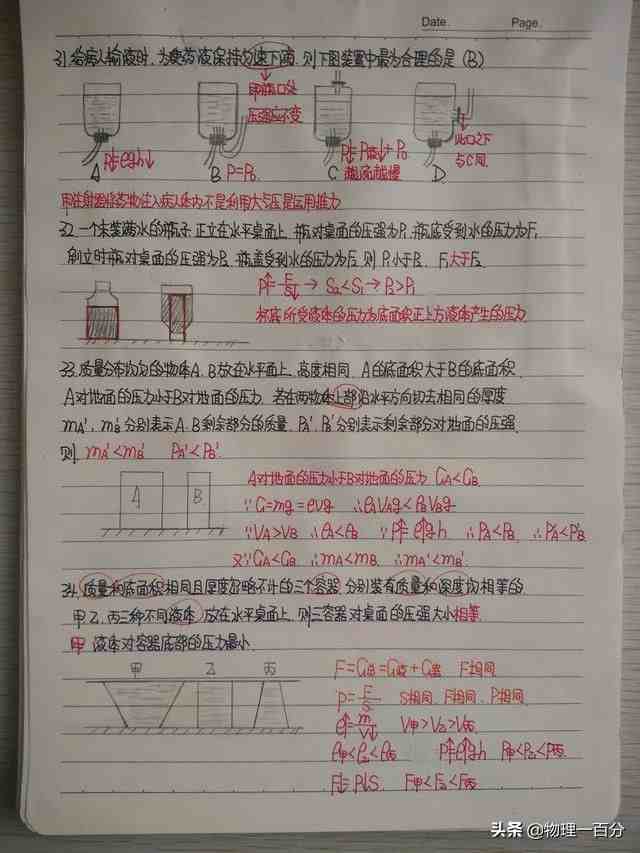 Date.
Page.
31. 给病人输液时, 为使药液保持匀速下滴, 则下图装置中最为合理的是 (B)
即瓶口处
压强应不变
A
P↓=ρgh↓
B
P=P₀
C
P↓=P瓶↓+P₀
越流越慢
D.
与C同.
用注射器将药物注入病人体内不是利用大气压是运用推力
32. 一个未装满水的瓶子. 正立在水平桌面上, 瓶对桌面的压强为P₁ 瓶底受到水的压力为F₁
倒立时瓶对桌面的压强为P₂ 瓶盖受到水的压力为F₂ 则 P₁小于P₂ F₁大于F₂
P↑=F/S↓ → S₂<S₁ → P₂>P₁
杯底所受液体的压力为底面积正上方液体产生的压力
33. 质量分布均匀的物体A、B放在水平面上, 高度相同, A的底面积大于B的底面积.
A对地面的压力小于B对地面的压力. 若在两物体上部沿水平方向切去相同的厚度
mA'、mB'分别表示A、B剩余部分的质量. PA'、PB'分别表示剩余部分对地面的压强.
则 mA'<mB' PA'<PB'
A
B
A对地面的压力小于B对地面的压力 GA<GB
∵G=mg=ρvg ∴ρAVAg<ρBVBg
∵VA>VB ∴ρA<ρB ∵P↑=ρ↑gh ∴PA<PB ∴PA'<PB'
又∵GA<GB ∴mA<mB ∴mA'<mB'
34. 质量和底面积相同且厚度忽略不计的三个容器 分别装有质量和深度均相等的
甲、乙、丙三种不同液体 放在水平桌面上, 则三容器对桌面的压强大小相等
甲 液体对容器底部的压力最小
甲
乙
丙
F=G总=G液+G容 F相同
P=F/S S相同、F相同、P相同
ρ↑=m/V↓ V甲>V乙>V丙
ρ甲<ρ乙<ρ丙 P↑=ρ↑gh P甲<P乙<P丙
F↓=P↓S F甲<F乙<F丙
头条 @物理一百分